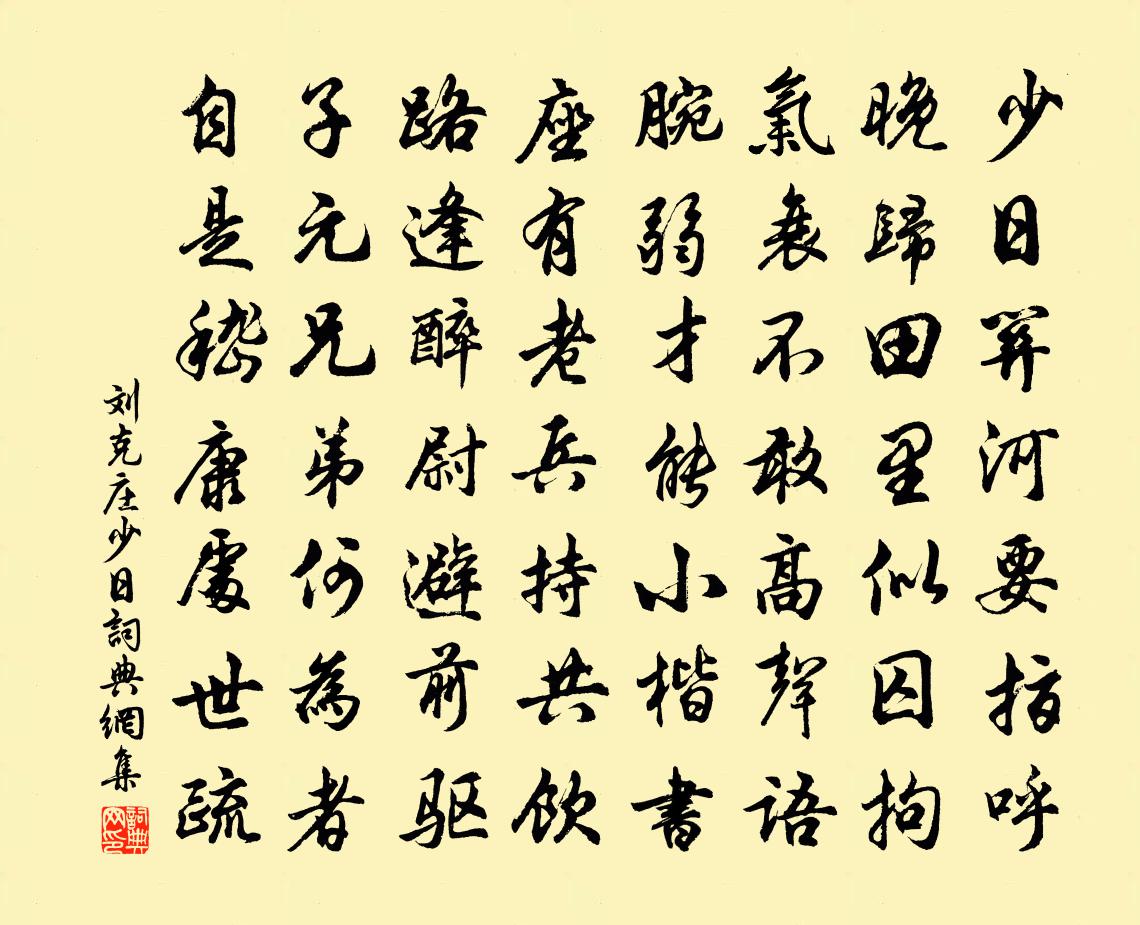 少日關河要指呼
晚歸田里似囚拘
氣衰不敢高聲語
腕弱才能小楷書
座有老兵持共飲
路逢醉尉避前驅
子元兄弟何為者
自是嵇康處世疏
刘克庄少日詞典網集
詞典网印